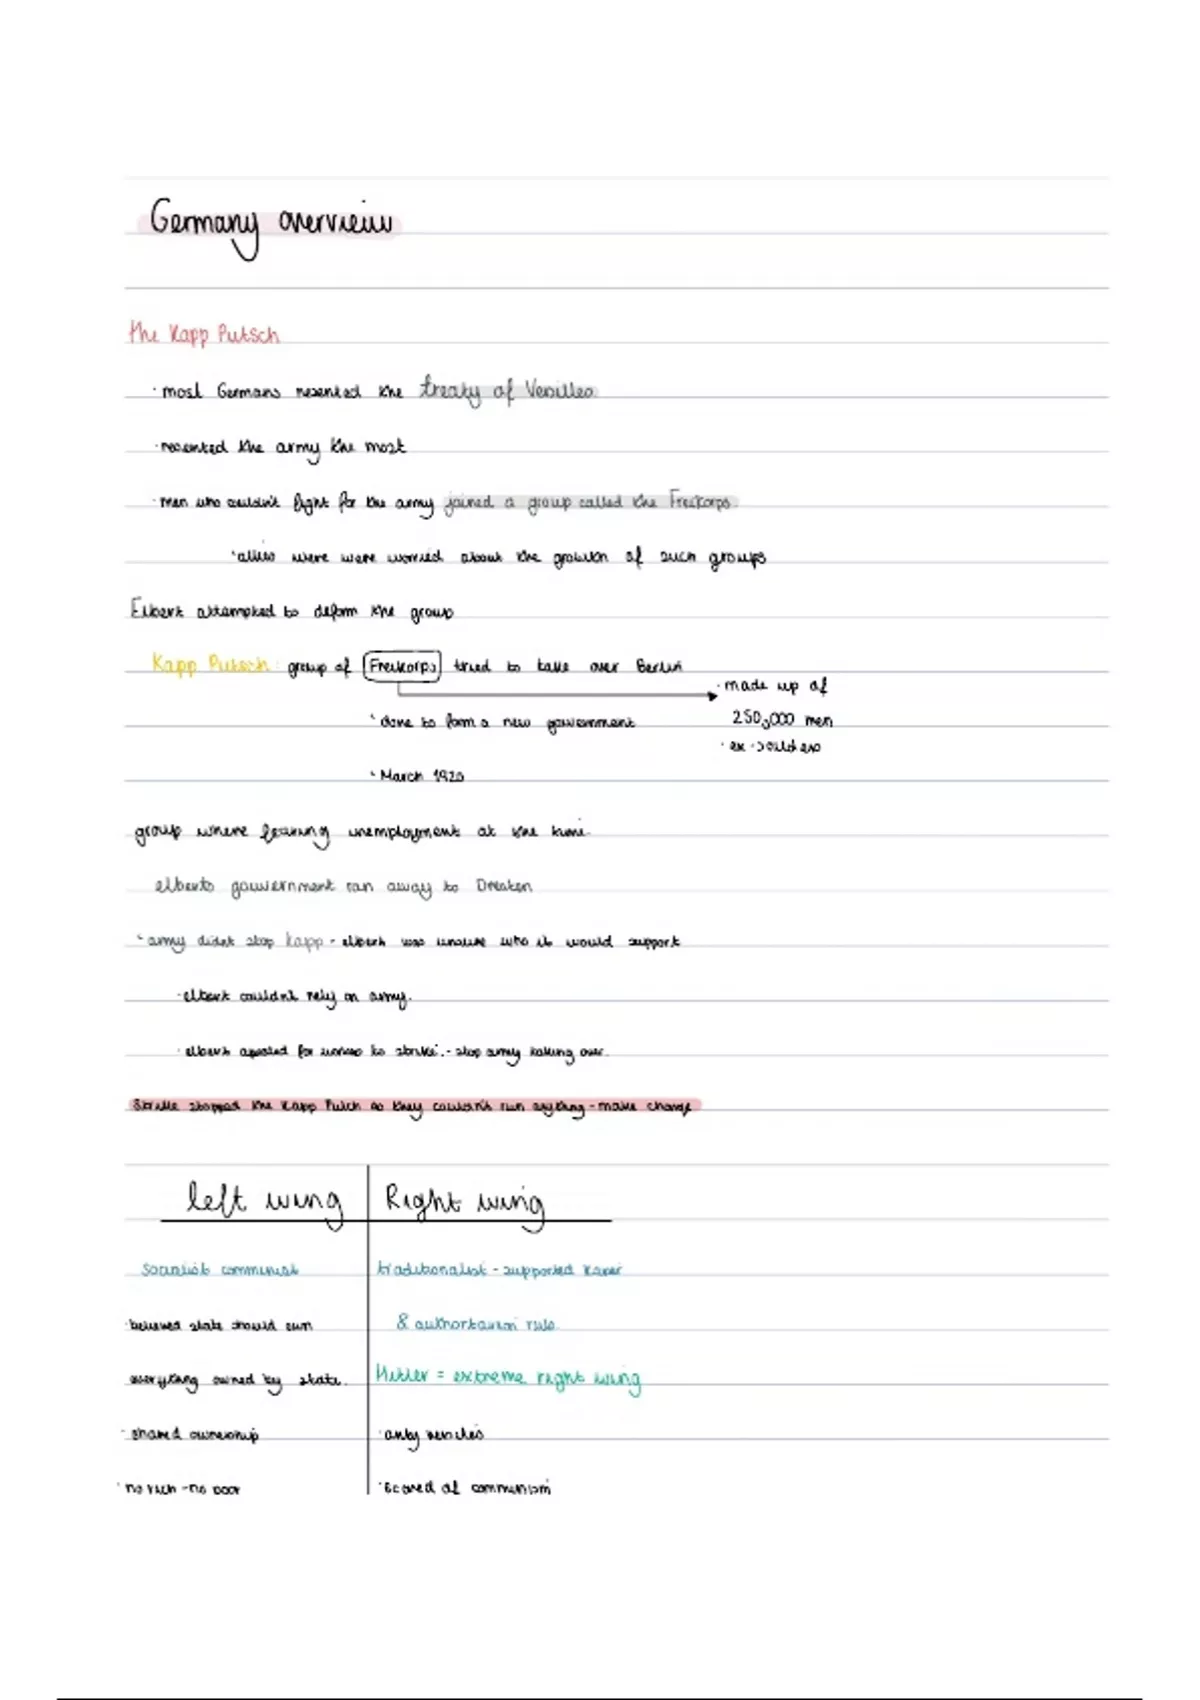 Germany overview
the Kapp Putsch
· most Germans resented the treaty of Versilles
· resented the army the most
· men who couldn't fight for the army joined a group called the Freikorps
· allies were were worried about the growth of such groups
Elbert attempted to deform the group
Kapp Putsch: group of Freikorps tried to take over Berlin
· made up of
250,000 men
· done to form a new gouvernment
· ex-souldiers
· March 1920
group where fearing unemployment at the time.
elberts gouvernment ran away to Dresten
· army didnt stop kapp - elbert was unsure who it would support
· elbert couldnt rely on army.
· elbert apealed for workers to strike. - stop army taking over.
Strike stopped the Kapp Putch as they couldn't run anything - make change
left wing
Right wing
Socialist communist
traditionalist - supported Kaiser
· believed state should run
& authoritarian rule.
everything owned by state.
Hitler = extreme right wing
· shared ownership
· anty versilles
· no rich - no poor
· Scared of communism